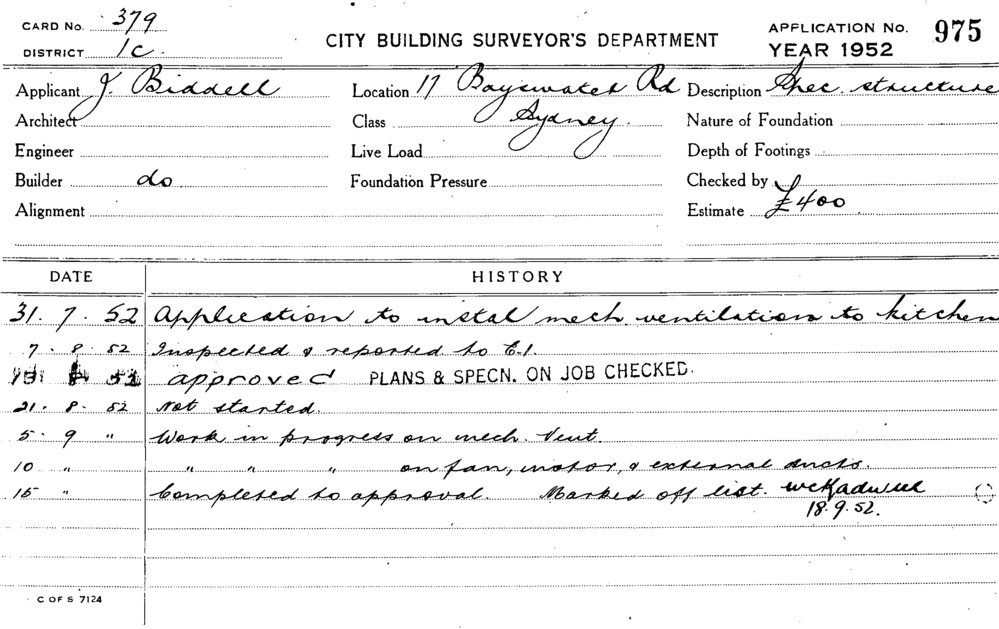 CARD No. 379
DISTRICT 1C.
CITY BUILDING SURVEYOR'S DEPARTMENT
APPLICATION No. 975
YEAR 1952
Applicant J. Biddell
Location 17 Bayswater Rd
Description Spec. structure
Architect
Class Sydney.
Nature of Foundation
Engineer
Live Load
Depth of Footings
Builder do
Foundation Pressure
Checked by
Alignment
Estimate £400
DATE HISTORY
31. 7. 52 Application to instal mech. ventilation to kitchen
7. 8. 52 Inspected & reported to E.I.
approved PLANS & SPECN. ON JOB CHECKED.
21. 8. 52 Not started.
5. 9 " Work in progress on mech. Vent.
10 " " " " on fan, motor, & external ducts.
15 " Completed to approval. Marked off list.
18. 9. 52.
C OF S 7124